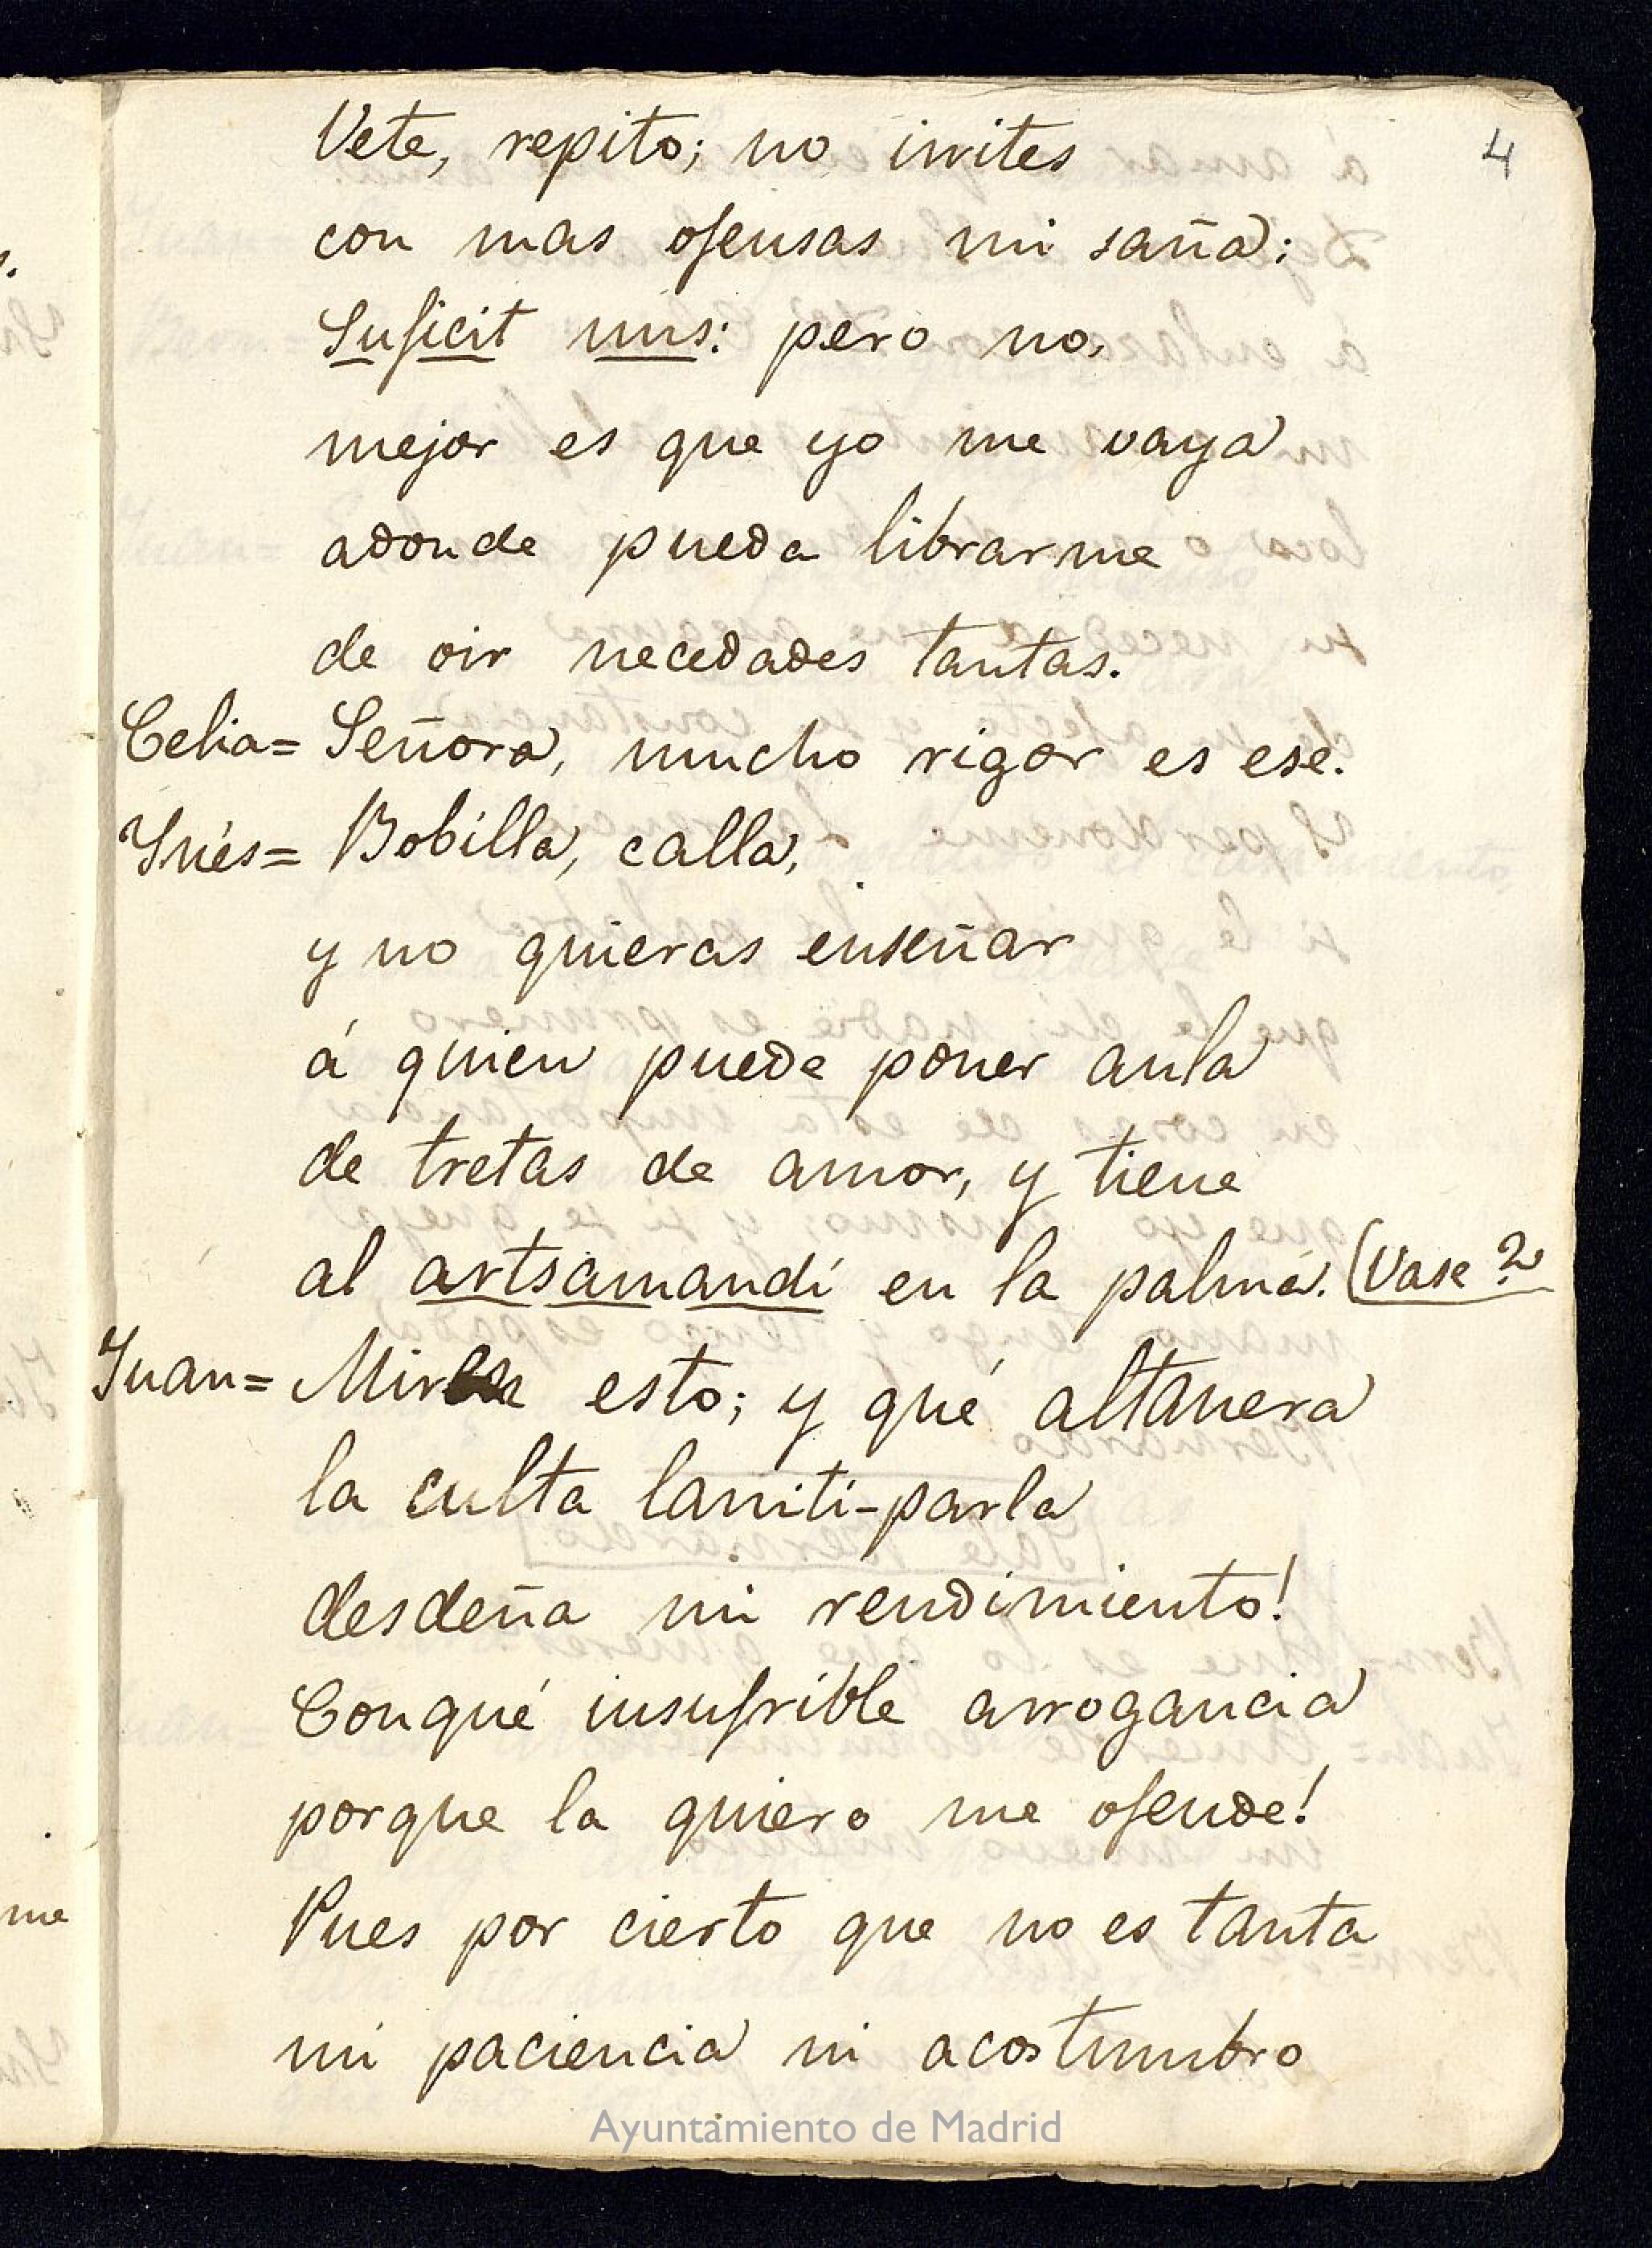 4
Vete, repito; no irrites
con mas ofensas mi saña:
Suficit uns: pero no,
mejor es que yo me vaya
adonde pueda librarme
de oir necedades tantas.
Celia= Señora, mucho rigor es ese.
Ynés= Bobilla, calla,
y no quieras enseñar
á quien puede poner aula
de tretas de amor, y tiene
al artsamandi en la palma. (Vase
Juan= Miren esto; y qué altanera
la culta laniti-parla
desdeña mi rendimiento!
Conqué insufrible arrogancia
porque la quiero me ofende!
Pues por cierto que no es tanta
mi paciencia ni acostumbro
Ayuntamiento de Madrid